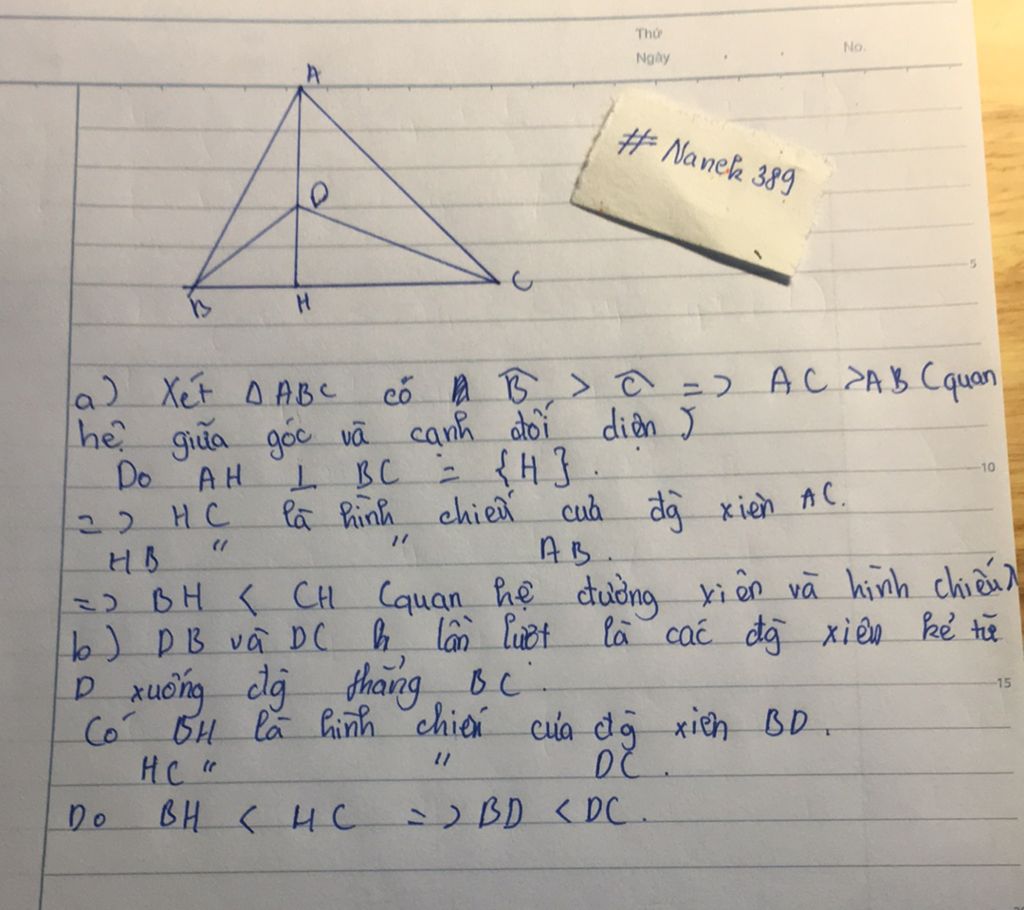 Thứ
Ngày
No.
A
# Nanek 389
D
B
H
C
5
a) Xét ΔABC có B̂ > Ĉ => AC > AB (quan
hệ giữa góc và cạnh đối diện)
Do AH ⊥ BC = {H}.
10
=> HC là hình chiếu của đg xiên AC.
HB " " AB.
=> BH < CH (quan hệ đường xiên và hình chiếu)
b) DB và DC lần lượt là các đg xiên kẻ từ
D xuống đg thẳng BC.
15
Có BH là hình chiếu của đg xiên BD.
HC " " DC.
Do BH < HC => BD < DC.